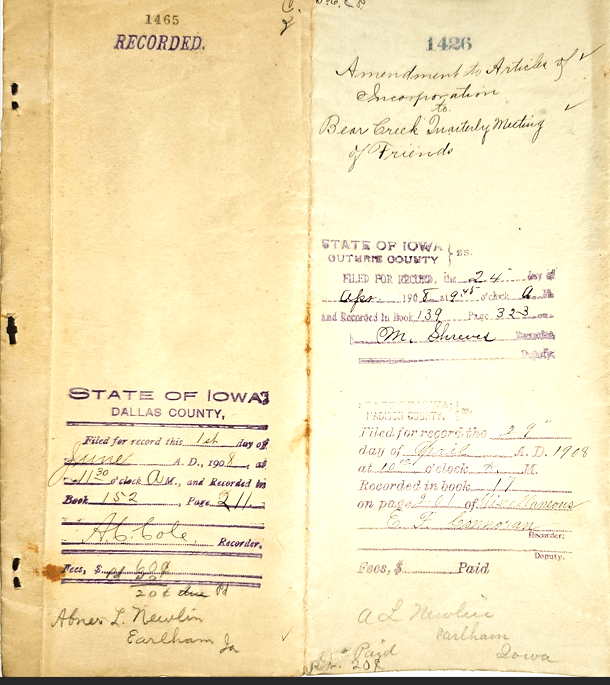 1465
RECORDED.
STATE OF IOWA
DALLAS COUNTY,
Filed for record this 1st day of
June A. D., 1908, at
11 30 o'clock A M., and Recorded in
Book 152, Page 211.
A.C. Cole Recorder.
Fees, $ pd 60¢
20¢ due Pd
Abner L. Newlin
Earlham Ia
1426
Amendment to Articles of
Incorporation
to
Bear Creek Quarterly Meeting
of Friends
STATE OF IOWA
GUTHRIE COUNTY } ss.
FILED FOR RECORD, the 24 day of
Apr. 1908 at 9 45 o'clock A M.
and Recorded in Book 139 Page 323
M. Shreves Recorder
Deputy.
STATE OF IOWA,
MADISON COUNTY, ss.
Filed for record the 29"
day of April A. D. 1908
at 10 o'clock A. M.
Recorded in book 17
on page 201 of Miscellaneous
E. F.
Recorder,
Deputy.
Fees, $ Paid
A L Newlin
Earlham
Iowa
Paid
20¢